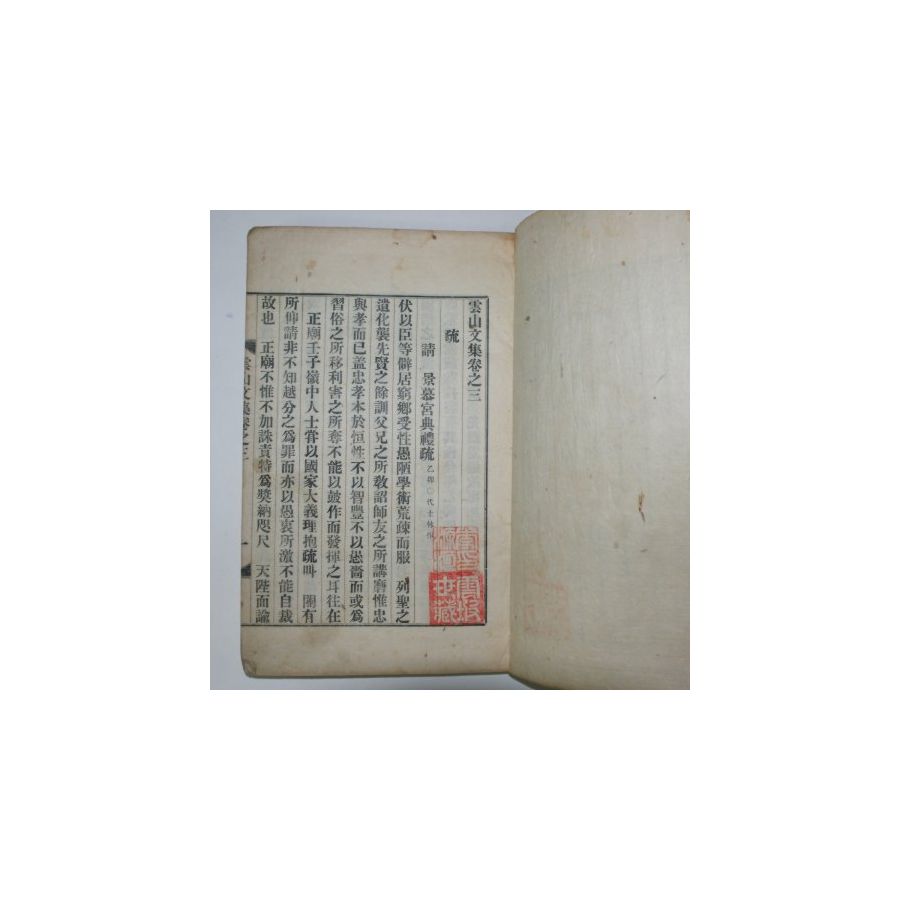 雲山文集卷之三
疏
請 景慕宮典禮疏 乙卯○代士林作
伏以臣等僻居窮鄉受性愚陋學術荒疎而服 列聖之
遺化襲先賢之餘訓父兄之所敎詔師友之所講磨惟忠
與孝而已盖忠孝本於恒性不以智豐不以愚嗇而或爲
習俗之所移利害之所奪不能以鼓作而發揮之耳往在
正廟壬子嶺中人士甞以國家大義理抱疏叫 閤有
所仰請非不知越分之爲罪而亦以愚衷所激不能自裁
故也 正廟不惟不加誅責特爲奬納咫尺 天陛面諭
雲山文集卷之三 一
世藏